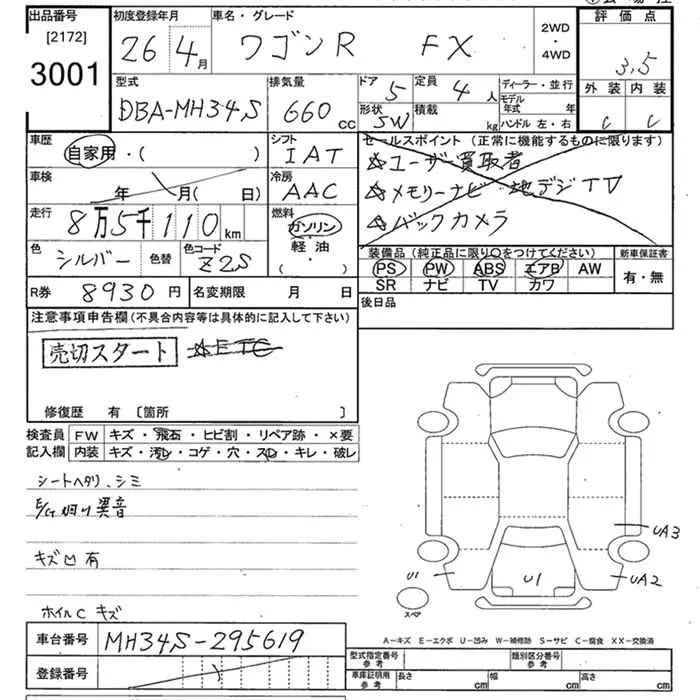 出品番号
[2172]
3001
初度登録年月
26 4月
車名・グレード
ワゴンR FX
2WD
・
4WD
評価点
3.5
外装 内装
C C
型式
DBA-MH34S
排気量
660 CC
ドア 5
定員 4 人
形状 SW
積載 kg
ディーラー・並行
モデル年式 年
ハンドル 左・右
車歴
自家用・( )
シフト
IAT
車検
年 月( 日)
冷房
AAC
走行
8万5千110 km
燃料
ガソリン
軽油
・( )
色 シルバー
色替
色コード Z2S
セールスポイント(正常に機能するものに限ります)
☆ユーザー買取者
☆メモリーナビ・地デジTV
☆バックカメラ
装備品(純正品に限り○をつけてください)
PS PW ABS エアB AW
SR ナビ TV カワ
新車保証書
有・無
R券 8930円
名変期限 月 日
後日品
注意事項申告欄(不具合内容等は具体的に記入して下さい)
売切スタート ☆ETC
修復歴 有 [箇所 ]
検査員記入欄
FW キズ・飛石・ヒビ割・リペア跡・×要
内装 キズ・汚レ・コゲ・穴・スレ・キレ・破レ
シートヘタリ、シミ
E/G 異音
キズ凹有
ホイルC キズ
UA3
U1
U1
UA2
スペア
A-キズ E-エクボ U-凹み W-補修跡 S-サビ C-腐食 XX-交換済
車台番号 MH34S-295619
登録番号
型式指定番号 参考
類別区分番号 参考
車庫証明用 参考
長さ cm 幅 cm 高さ cm